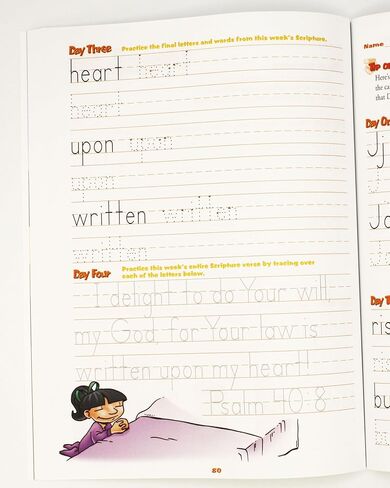 Day Three Practice the final letters and words from this week's Scripture.
heart heart
heart
upon upon
upon
written written
written
Day Four Practice this week's entire Scripture verse by tracing over
each of the letters below.
I delight to do Your will,
my God, for Your law is
written upon my heart!
Psalm 40:8
80
Name
Tip
Here's
the ca
that I
Day On
Jj
J
j
Day T
ris
bus